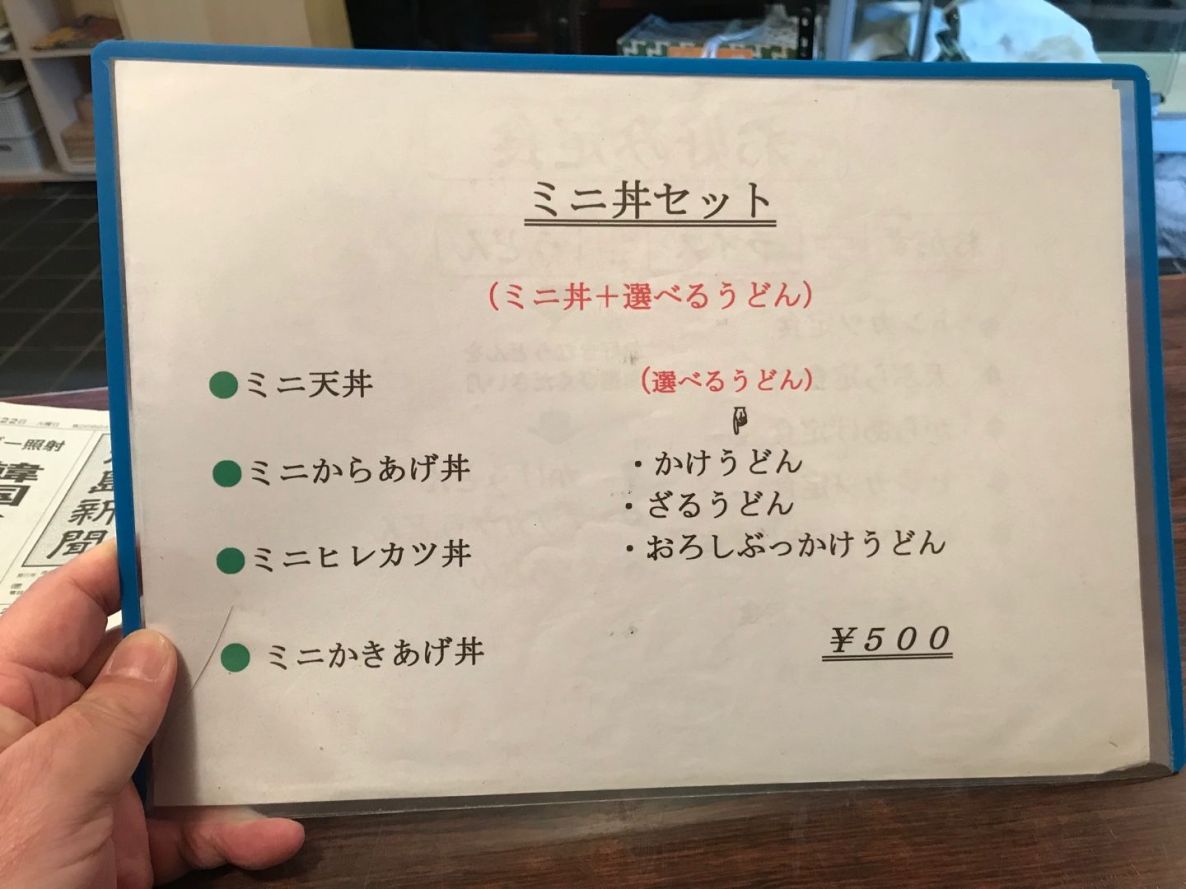 ミニ丼セット
(ミニ丼＋選べるうどん)
●ミニ天丼
●ミニからあげ丼
●ミニヒレカツ丼
●ミニかきあげ丼
(選べるうどん)
・かけうどん
・ざるうどん
・おろしぶっかけうどん
￥５００
22日 火曜日
ー照射
韓国
島新聞